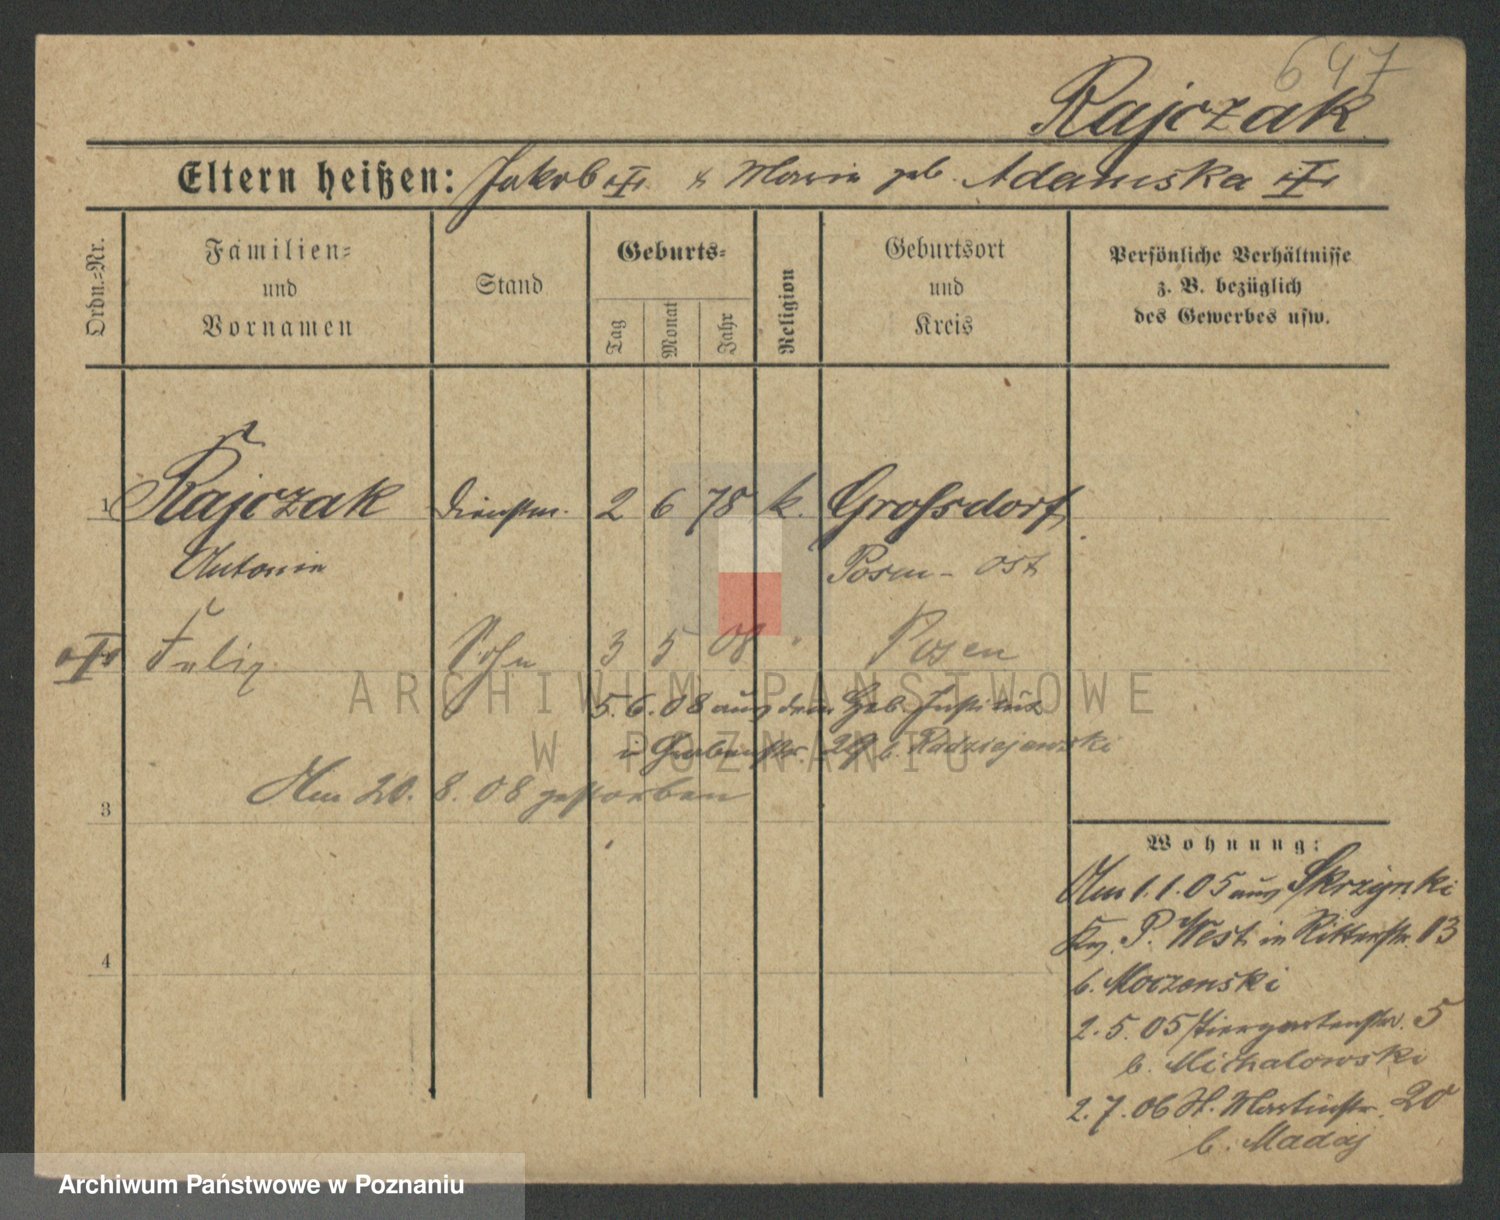 647
Rajczak
Eltern heißen: Jakob & Maria geb. Adamska
Ordn.=Nr.
Familien= und Vornamen
Stand
Geburts=
Tag
Monat
Jahr
Religion
Geburtsort und Kreis
Persönliche Verhältnisse
z. B. bezüglich
des Gewerbes usw.
1 Rajczak Dienstm. 2 6 78 k. Grossdorf
Antonie Posen - Ost
Felix Sohn 3 5 08 " Posen
5. 6. 08 aus dem Geb. Institut
in Grabenstr. 29 b. Radziejewski
Am 20. 8. 08 gestorben
3
4
Wohnung:
Am 1.1.05 aus Skrzynki
Krs. P. West in Ritterstr. 13
b. Moczenski
2. 5. 05 Tiergartenstr. 5
b. Michalowski
2. 7. 06 St. Martinstr. 20
b. Madaj
ARCHIWUM PAŃSTWOWE
W POZNANIU
Archiwum Państwowe w Poznaniu